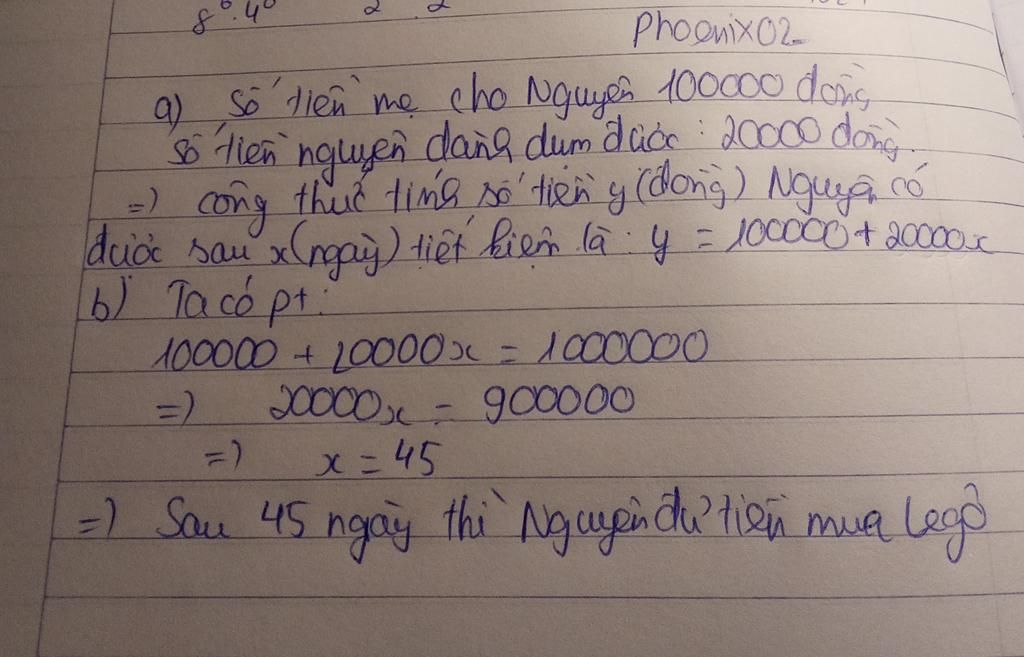 8⁶.4⁶ 2 . 2
Phoenix02
a) Số tiền mẹ cho Nguyên 100000 đồng
Số tiền nguyên dành dụm được : 20000 đồng.
=) công thức tính số tiền y (đồng) Nguyên có
được sau x (ngày) tiết kiệm là : y = 100000 + 20000x
b) Ta có pt :
100000 + 20000x = 1000000
=) 20000x = 900000
=) x = 45
=) Sau 45 ngày thì Nguyên đủ tiền mua lego